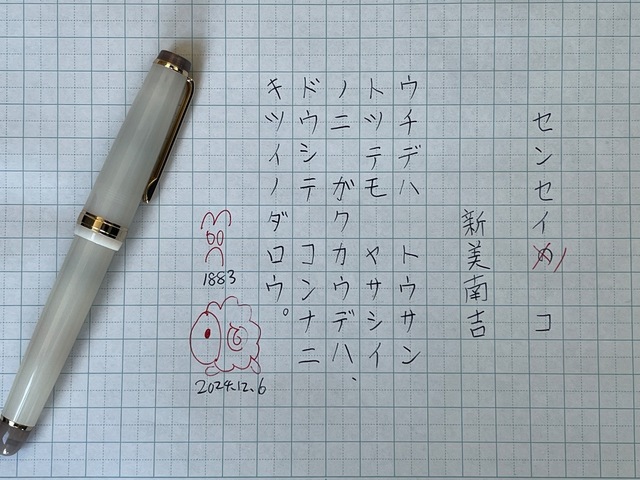 センセイノ コ
新美南吉
ウチデハ トウサン
トツテモ ヤサシイ
ノニ がクカウデハ、
ドウシテ コンナニ
キツイノダロウ。
1883
2024.12.6